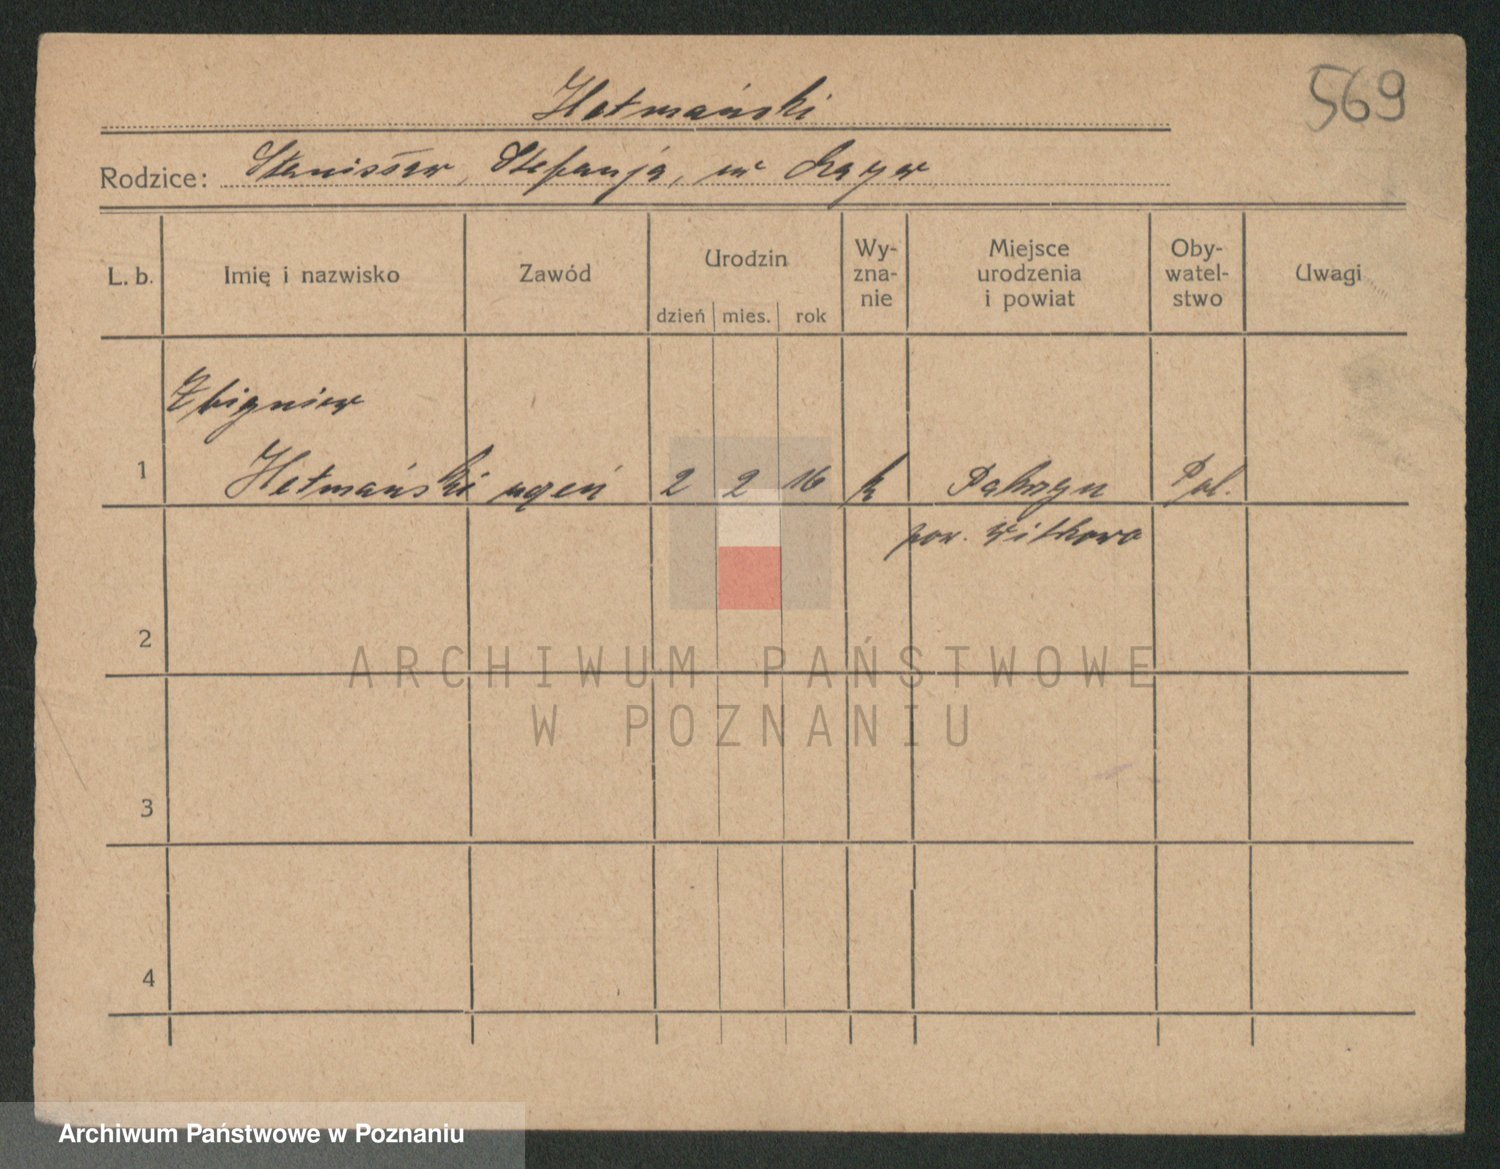 569
Hetmański
Rodzice: Stanisław, Stefanja, ur
L. b.
Imię i nazwisko
Zawód
Urodzin
dzień mies. rok
Wy-
zna-
nie
Miejsce
urodzenia
i powiat
Oby-
watel-
stwo
Uwagi
Zbigniew
1 Hetmański uczeń 2 2 16 k Pol.
pow. Witkowo
2
3
4
ARCHIWUM PAŃSTWOWE
W POZNANIU
Archiwum Państwowe w Poznaniu